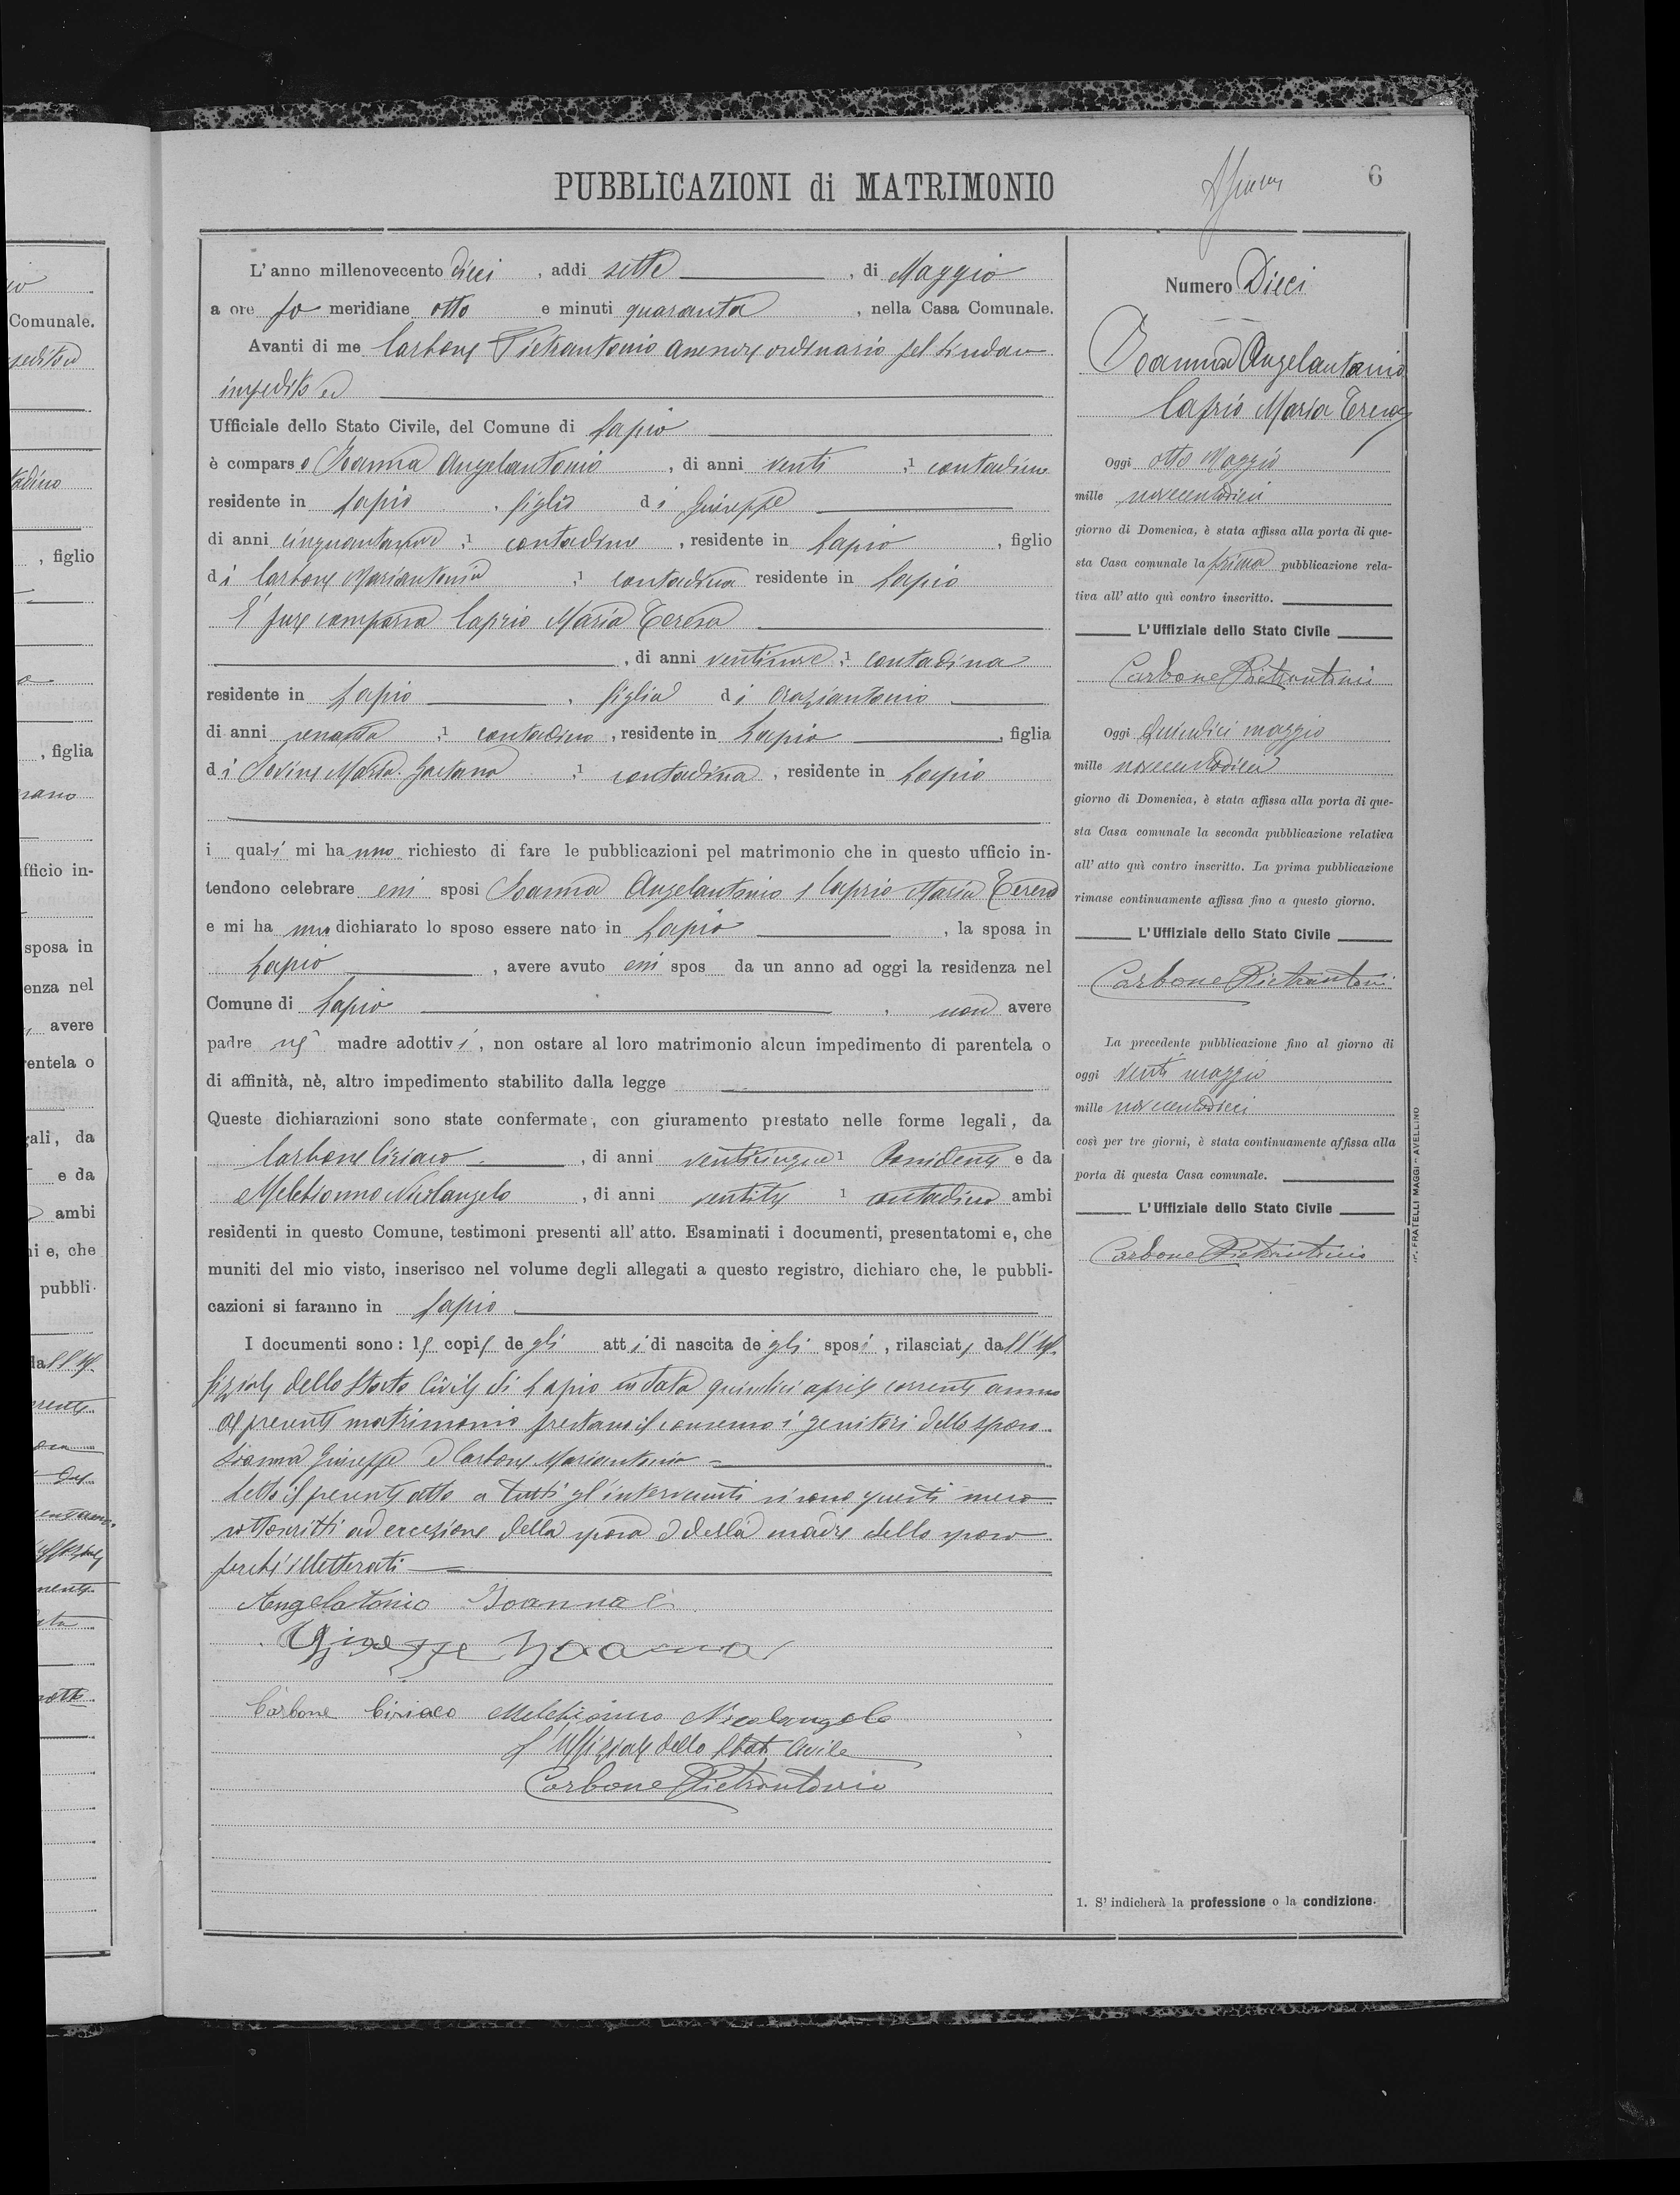 PUBBLICAZIONI di MATRIMONIO
6
L'anno millenovecento dieci , addì sette , di Maggio
a ore po meridiane otto e minuti quaranta , nella Casa Comunale.
Avanti di me Carbone Pietrantonio assessore ordinario pel Sindaco
impedito ed
Ufficiale dello Stato Civile, del Comune di Lapio
è comparso Ioanna Angelantonio , di anni venti ,1 contadino
residente in Lapio , figlio di Giuseppe
di anni ,1 contadino , residente in Lapio , figlio
di Carbone Mariantonia ,1 contadina residente in Lapio
E' pure comparsa Caprio Maria Teresa
, di anni ,1 contadina
residente in Lapio , figlia di Oraziantonio
di anni ,1 contadino , residente in Lapio , figlia
di Iovine Maria Gaetana ,1 contadina , residente in Lapio
i quali mi hanno richiesto di fare le pubblicazioni pel matrimonio che in questo ufficio in-
tendono celebrare essi sposi Ioanna Angelantonio e Caprio Maria Teresa
e mi hanno dichiarato lo sposo essere nato in Lapio , la sposa in
Lapio , avere avuto essi spos da un anno ad oggi la residenza nel
Comune di Lapio , non avere
padre nè madre adottivi , non ostare al loro matrimonio alcun impedimento di parentela o
di affinità, nè, altro impedimento stabilito dalla legge
Queste dichiarazioni sono state confermate, con giuramento prestato nelle forme legali, da
Carbone Ciriaco , di anni venticinque 1 Possidente e da
Melchionno Nicolangelo , di anni ventitre 1 contadino ambi
residenti in questo Comune, testimoni presenti all'atto. Esaminati i documenti, presentatomi e, che
muniti del mio visto, inserisco nel volume degli allegati a questo registro, dichiaro che, le pubbli-
cazioni si faranno in Lapio
I documenti sono: le copie degli atti di nascita degli sposi , rilasciate dall'Uf-
fiziale dello Stato Civile di Lapio in data quindici aprile corrente anno
Al presente matrimonio prestano il consenso i genitori dello sposo
Ioanna Giuseppe e Carbone Mariantonia
Letto il presente atto a tutti gl'intervenuti si sono questi meco
sottoscritti ad eccezione della sposa e della madre dello sposo
perchè illetterati
Angelatonio Ioanna
Giuseppe Ioanna
Carbone Ciriaco Melchionno Nicolangelo
L'Uffiziale dello Stato Civile
Carbone Pietrantonio
Numero Dieci
Ioanna Angelantonio
Caprio Maria Teresa
Oggi otto Maggio
mille novecentodieci
giorno di Domenica, è stata affissa alla porta di que-
sta Casa comunale la prima pubblicazione rela-
tiva all'atto quì contro inscritto.
L'Uffiziale dello Stato Civile
Carbone Pietrantonio
Oggi Quindici maggio
mille novecentodieci
giorno di Domenica, è stata affissa alla porta di que-
sta Casa comunale la seconda pubblicazione relativa
all'atto quì contro inscritto. La prima pubblicazione
rimase continuamente affissa fino a questo giorno.
L'Uffiziale dello Stato Civile
Carbone Pietrantoni
La precedente pubblicazione fino al giorno di
oggi venti maggio
mille novecentodieci
così per tre giorni, è stata continuamente affissa alla
porta di questa Casa comunale.
L'Uffiziale dello Stato Civile
Carbone Pietrantonio
1. S'indicherà la professione o la condizione.
FRATELLI MAGGI - AVELLINO
Comunale.
, figlio
, figlia
ufficio in-
sposa in
enza nel
avere
rentela o
gali, da
e da
ambi
ni e, che
pubbli-